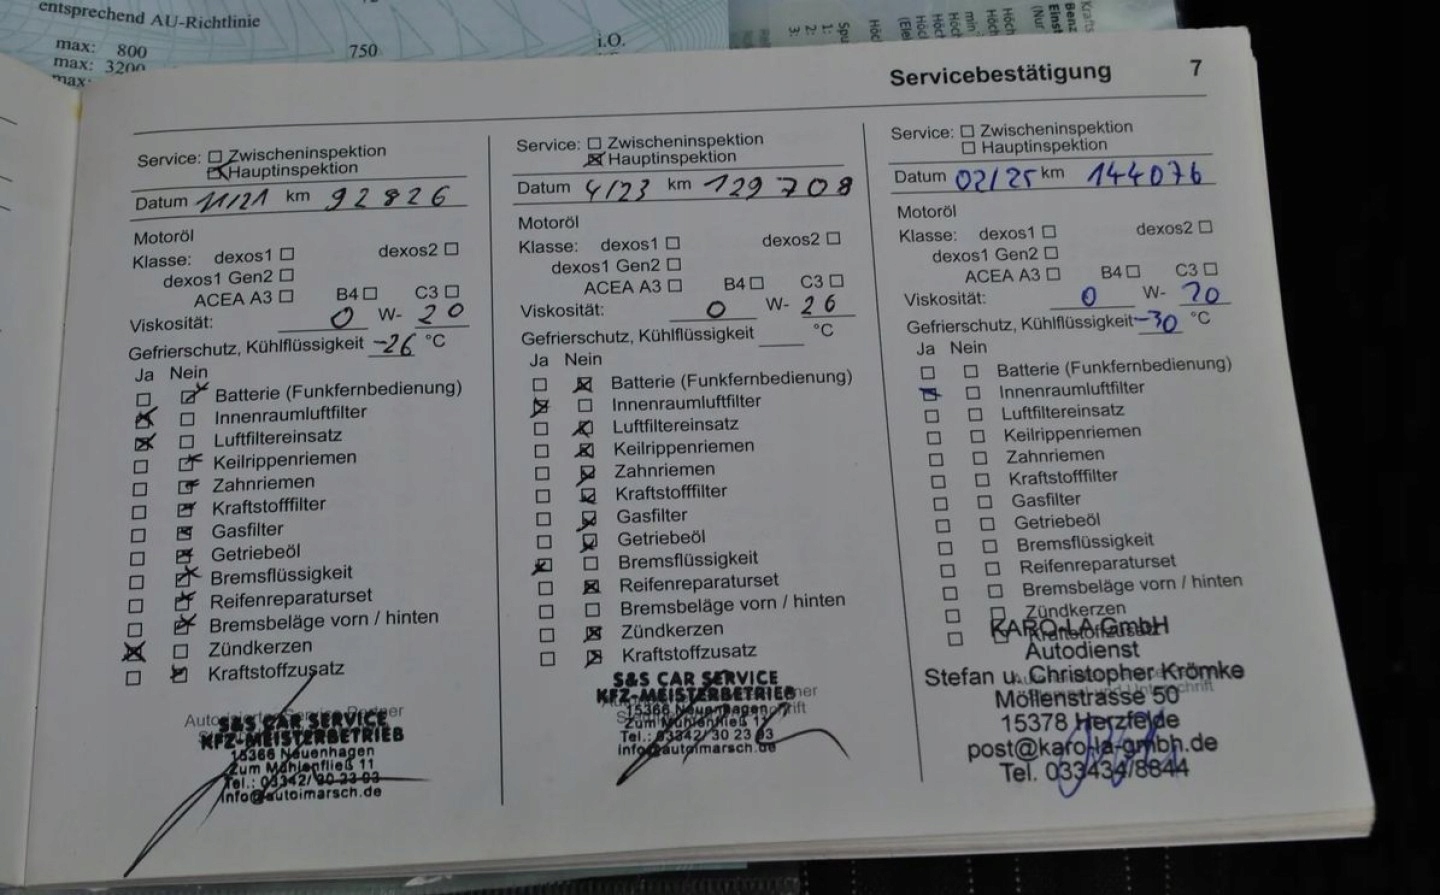 entsprechend AU-Richtlinie
max: 800 750 i.O.
max: 3200
max:
Servicebestätigung 7
Service: Zwischeninspektion
Hauptinspektion
Datum 11/21 km 92826
Motoröl
Klasse: dexos1 dexos2
dexos1 Gen2
ACEA A3 B4 C3
Viskosität: 0 W- 20
Gefrierschutz, Kühlflüssigkeit -26 °C
Ja Nein
Batterie (Funkfernbedienung)
Innenraumluftfilter
Luftfiltereinsatz
Keilrippenriemen
Zahnriemen
Kraftstofffilter
Gasfilter
Getriebeöl
Bremsflüssigkeit
Reifenreparaturset
Bremsbeläge vorn / hinten
Zündkerzen
Kraftstoffzusatz
S&S CAR SERVICE
KFZ-MEISTERBETRIEB
15366 Neuenhagen
Zum Mühlenfließ 11
Tel.: 03342/ 30 23 03
info@autoimarsch.de
Service: Zwischeninspektion
Hauptinspektion
Datum 4/23 km 129708
Motoröl
Klasse: dexos1 dexos2
dexos1 Gen2
ACEA A3 B4 C3
Viskosität: 0 W- 26
Gefrierschutz, Kühlflüssigkeit °C
Ja Nein
Batterie (Funkfernbedienung)
Innenraumluftfilter
Luftfiltereinsatz
Keilrippenriemen
Zahnriemen
Kraftstofffilter
Gasfilter
Getriebeöl
Bremsflüssigkeit
Reifenreparaturset
Bremsbeläge vorn / hinten
Zündkerzen
Kraftstoffzusatz
S&S CAR SERVICE
KFZ-MEISTERBETRIEB
15366 Neuenhagen
Zum Mühlenfließ 11
Tel.: 03342/ 30 23 03
info@autoimarsch.de
Service: Zwischeninspektion
Hauptinspektion
Datum 02/25 km 144076
Motoröl
Klasse: dexos1 dexos2
dexos1 Gen2
ACEA A3 B4 C3
Viskosität: 0 W- 20
Gefrierschutz, Kühlflüssigkeit -30 °C
Ja Nein
Batterie (Funkfernbedienung)
Innenraumluftfilter
Luftfiltereinsatz
Keilrippenriemen
Zahnriemen
Kraftstofffilter
Gasfilter
Getriebeöl
Bremsflüssigkeit
Reifenreparaturset
Bremsbeläge vorn / hinten
Zündkerzen
Kraftstoffzusatz
KARO-LA GmbH
Autodienst
Stefan u. Christopher Krömke
Möllenstrasse 50
15378 Herzfelde
post@karo-la-gmbh.de
Tel. 033434/8844